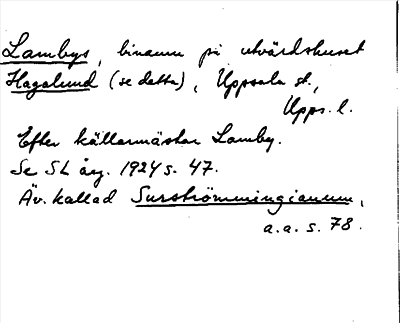 Lambys, binamn på utvärdshuset
Hagalund (se detta), Uppsala st.,
Upps. l.
Efter källarmästar Lamby.
Se SL årg. 1924 s. 47.
Äv. kallad Surströmmingianum,
a.a. s. 78.